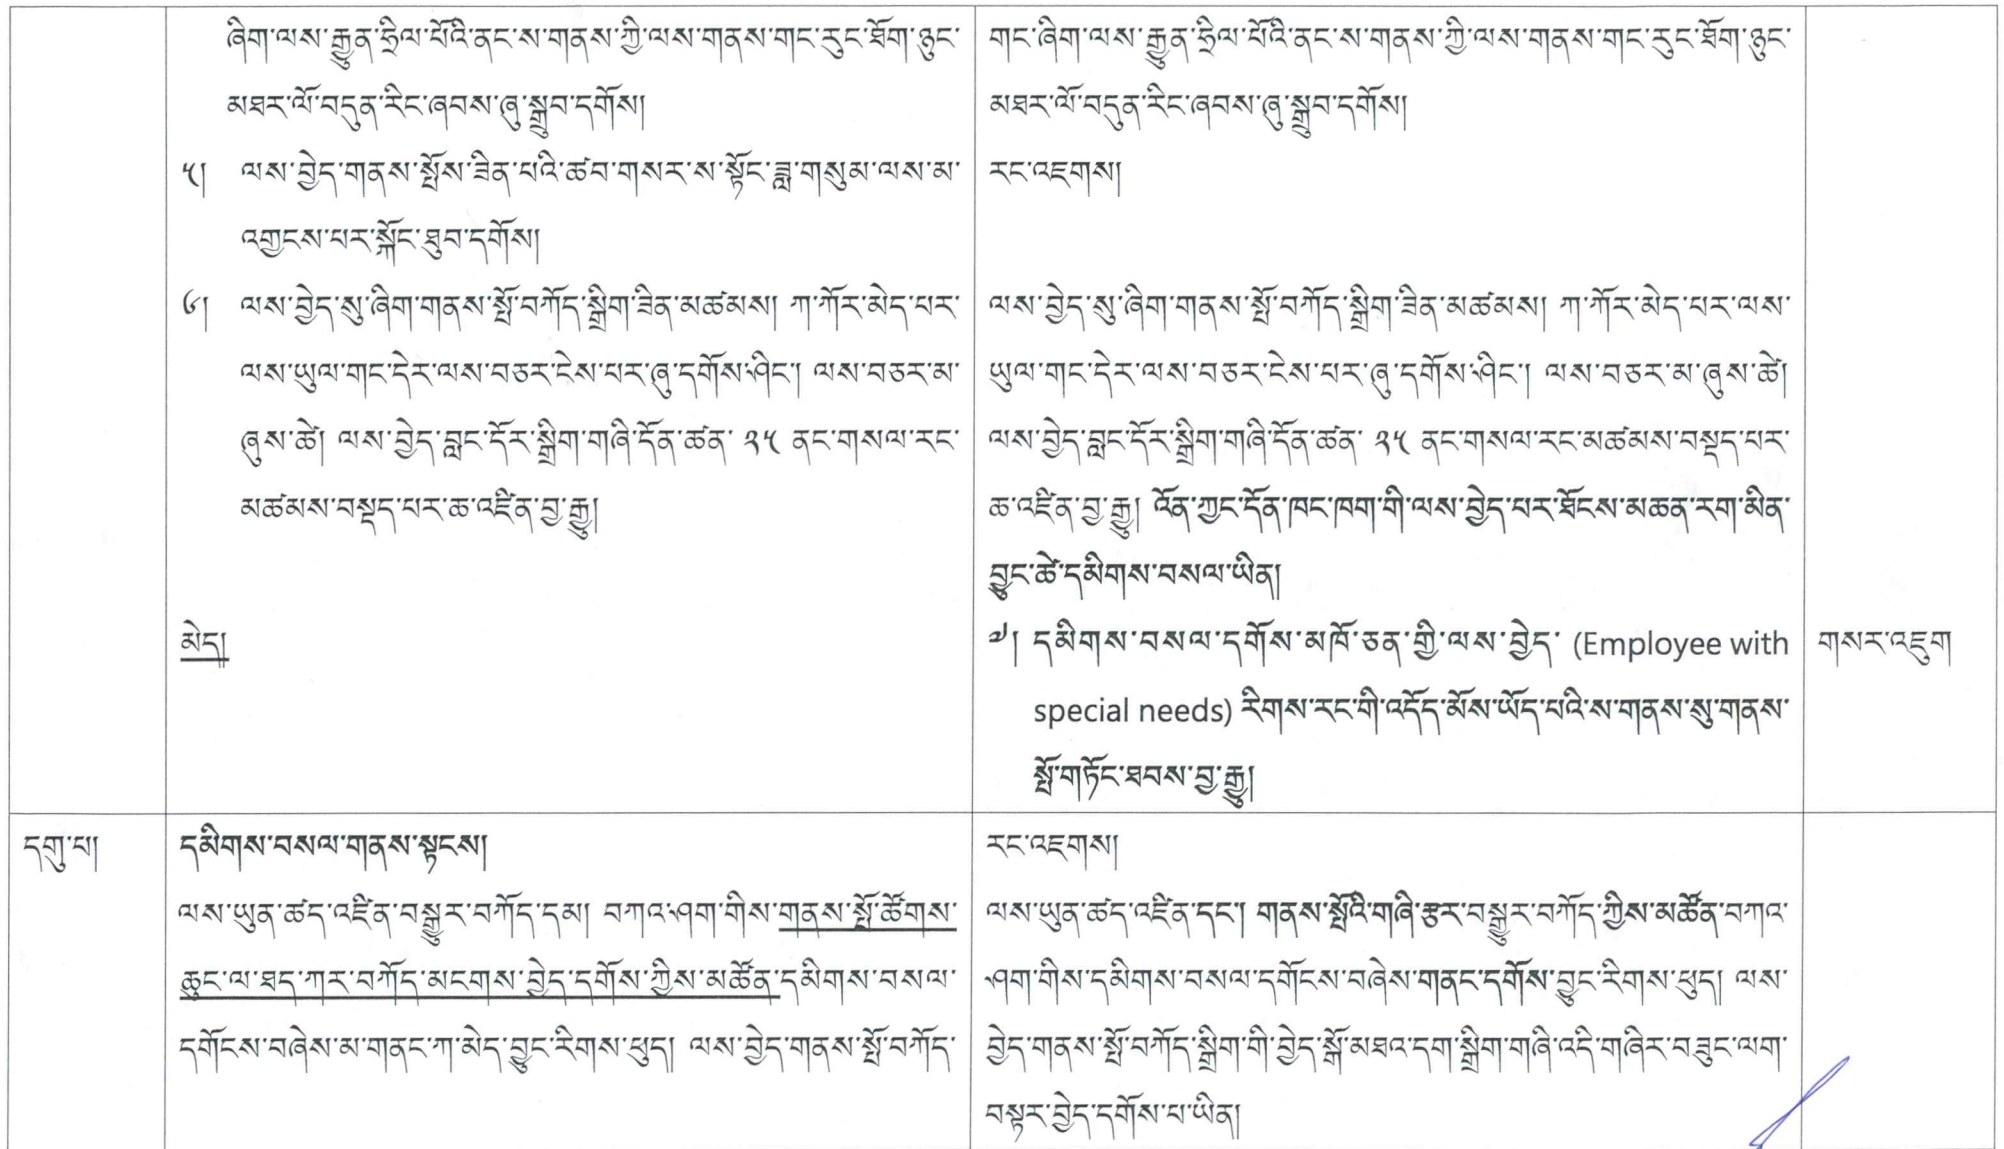 ཞིག་ལས་རྒྱུན་ཧྲིལ་པོའི་ནང་ས་གནས་ཀྱི་ལས་གནས་གང་རུང་ཐོག་ཉུང་
མཐར་ལོ་བདུན་རིང་ཞབས་ཞུ་སྒྲུབ་དགོས།
༥། ལས་བྱེད་གནས་སྤོས་ཟིན་པའི་ཚབ་གསར་ས་སྟོང་ཟླ་གསུམ་ལས་མ་
འགྱངས་པར་སྐོང་ཐུབ་དགོས།
༦། ལས་བྱེད་སུ་ཞིག་གནས་སྤོ་བཀོད་སྒྲིག་ཟིན་མཚམས། ཀ་ཀོར་མེད་པར་
ལས་ཡུལ་གང་དེར་ལས་བཅར་ངེས་པར་ཞུ་དགོས་ཤིང་། ལས་བཅར་མ་
ཞུས་ཚེ། ལས་བྱེད་བླང་དོར་སྒྲིག་གཞི་དོན་ཚན་ ༢༥ ནང་གསལ་རང་
མཚམས་བསྡད་པར་ཆ་འཛིན་བྱ་རྒྱུ།
མེད།
གང་ཞིག་ལས་རྒྱུན་ཧྲིལ་པོའི་ནང་ས་གནས་ཀྱི་ལས་གནས་གང་རུང་ཐོག་ཉུང་
མཐར་ལོ་བདུན་རིང་ཞབས་ཞུ་སྒྲུབ་དགོས།
རང་འཇགས།
ལས་བྱེད་སུ་ཞིག་གནས་སྤོ་བཀོད་སྒྲིག་ཟིན་མཚམས། ཀ་ཀོར་མེད་པར་ལས་
ཡུལ་གང་དེར་ལས་བཅར་ངེས་པར་ཞུ་དགོས་ཤིང་། ལས་བཅར་མ་ཞུས་ཚེ།
ལས་བྱེད་བླང་དོར་སྒྲིག་གཞི་དོན་ཚན་ ༢༥ ནང་གསལ་རང་མཚམས་བསྡད་པར་
ཆ་འཛིན་བྱ་རྒྱུ། འོན་ཀྱང་དོན་ཁང་ཁག་གི་ལས་བྱེད་པར་ཐོངས་མཆན་རག་མིན་
བྱུང་ཚེ་དམིགས་བསལ་ཡིན།
༧། དམིགས་བསལ་དགོས་མཁོ་ཅན་གྱི་ལས་བྱེད་ (Employee with
special needs) རིགས་རང་གི་འདོད་མོས་ཡོད་པའི་ས་གནས་སུ་གནས་
སྤོ་གཏོང་ཐབས་བྱ་རྒྱུ།
གསར་འཇུག
དགུ་པ།
དམིགས་བསལ་གནས་སྟངས།
ལས་ཡུན་ཚད་འཛིན་བསྒྱུར་བཀོད་དམ། བཀའ་ཤག་གིས་གནས་སྤོ་ཚོགས་
ཆུང་ལ་ཐད་ཀར་བཀོད་མངགས་བྱེད་དགོས་ཀྱིས་མཚོན་དམིགས་བསལ་
དགོངས་བཞེས་མ་གནང་ཀ་མེད་བྱུང་རིགས་ཕུད། ལས་བྱེད་གནས་སྤོ་བཀོད་
རང་འཇགས།
ལས་ཡུན་ཚད་འཛིན་དང་། གནས་སྤོའི་གཞི་རྩར་བསྒྱུར་བཀོད་ཀྱིས་མཚོན་བཀའ་
ཤག་གིས་དམིགས་བསལ་དགོངས་བཞེས་གནང་དགོས་བྱུང་རིགས་ཕུད། ལས་
བྱེད་གནས་སྤོ་བཀོད་སྒྲིག་གི་བྱེད་སྒོ་མཐའ་དག་སྒྲིག་གཞི་འདི་གཞིར་བཟུང་ལག་
བསྟར་བྱེད་དགོས་པ་ཡིན།